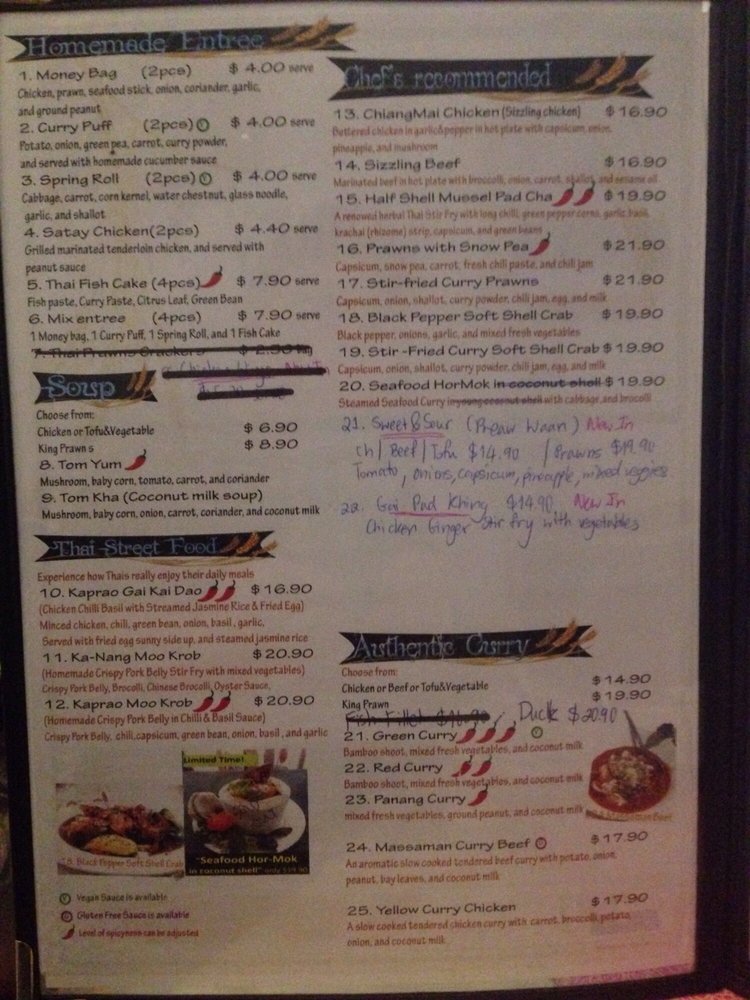 Homemade Entree
1. Money Bag (2pcs) $ 4.00 serve
Chicken, prawn, seafood stick, onion, coriander, garlic,
and ground peanut
2. Curry Puff (2pcs) V $ 4.00 serve
Potato, onion, green pea, carrot, curry powder,
and served with homemade cucumber sauce
3. Spring Roll (2pcs) V $ 4.00 serve
Cabbage, carrot, corn kernel, water chestnut, glass noodle,
garlic, and shallot
4. Satay Chicken(2pcs) $ 4.40 serve
Grilled marinated tenderloin chicken, and served with
peanut sauce
5. Thai Fish Cake (4pcs) $ 7.90 serve
Fish paste, Curry Paste, Citrus Leaf, Green Bean
6. Mix entree (4pcs) $ 7.90 serve
1 Money bag, 1 Curry Puff, 1 Spring Roll, and 1 Fish Cake
7. Thai Prawns Crackers $ 2.50
Soup
Choose from:
Chicken or Tofu&Vegetable $ 6.90
King Prawn s $ 8.90
8. Tom Yum
Mushroom, baby corn, tomato, carrot, and coriander
9. Tom Kha (Coconut milk soup)
Mushroom, baby corn, onion, carrot, coriander, and coconut milk
Thai Street Food
Experience how Thais really enjoy their daily meals
10. Kaprao Gai Kai Dao $ 16.90
(Chicken Chilli Basil with Streamed Jasmine Rice & Fried Egg)
Minced chicken, chili, green bean, onion, basil, garlic,
Served with fried egg sunny side up, and steamed jasmine rice
11. Ka-Nang Moo Krob $ 20.90
(Homemade Crispy Pork Belly Stir Fry with mixed vegetables)
Crispy Pork Belly, Brocolli, Chinese Brocolli, Oyster Sauce,
12. Kaprao Moo Krob $ 20.90
(Homemade Crispy Pork Belly in Chilli & Basil Sauce)
Crispy Pork Belly, chili,capsicum, green bean, onion, basil, and garlic
18. Black Pepper Soft Shell Crab
Limited Time!
"Seafood Hor-Mok
in coconut shell" only $19.90
V Vegan Sauce is available
G Gluten Free Sauce is available
Level of spicyness can be adjusted
Chef's recommended
13. ChiangMai Chicken (Sizzling chicken) $ 16.90
Buttered chicken in garlic&pepper in hot plate with capsicum, onion,
pineapple, and mushroom
14. Sizzling Beef $ 16.90
Marinated beef in hot plate with broccoli, onion, carrot, shallot, and sesame oil
15. Half Shell Mussel Pad Cha $ 19.90
A renowned herbal Thai Stir Fry with long chilli, green pepper corns, garlic, basil,
krachai (rhizome) strip, capsicum, and green beans
16. Prawns with Snow Pea $ 21.90
Capsicum, snow pea, carrot, fresh chili paste, and chili jam
17. Stir-fried Curry Prawns $ 21.90
Capsicum, onion, shallot, curry powder, chili jam, egg, and milk
18. Black Pepper Soft Shell Crab $ 19.90
Black pepper, onions, garlic, and mixed fresh vegetables
19. Stir -Fried Curry Soft Shell Crab $ 19.90
Capsicum, onion, shallot, curry powder, chili jam, egg, and milk
20. Seafood HorMok in coconut shell $ 19.90
Steamed Seafood Curry in young coconut shell with cabbage, and brocolli
21. Sweet & Sour (Preaw Waan) New In
Ch / Beef / Tofu $14.90 / Prawns $19.90
Tomato, onions, capsicum, pineapple, mixed veggies
22. Gai Pad Khing $14.90. New In
Chicken Ginger Stir fry with vegetables
Authentic Curry
Choose from:
Chicken or Beef or Tofu&Vegetable $ 14.90
King Prawn $ 19.90
Fish Fillet $16.90 Duck $20.90
21. Green Curry V
Bamboo shoot, mixed fresh vegetables, and coconut milk
22. Red Curry
Bamboo shoot, mixed fresh vegetables, and coconut milk
23. Panang Curry
mixed fresh vegetables, ground peanut, and coconut milk
Massaman Beef
24. Massaman Curry Beef G $ 17.90
An aromatic slow cooked tendered beef curry with potato, onion,
peanut, bay leaves, and coconut milk
25. Yellow Curry Chicken $ 17.90
A slow cooked tendered chicken curry with carrot, broccolli, potato,
onion, and coconut milk